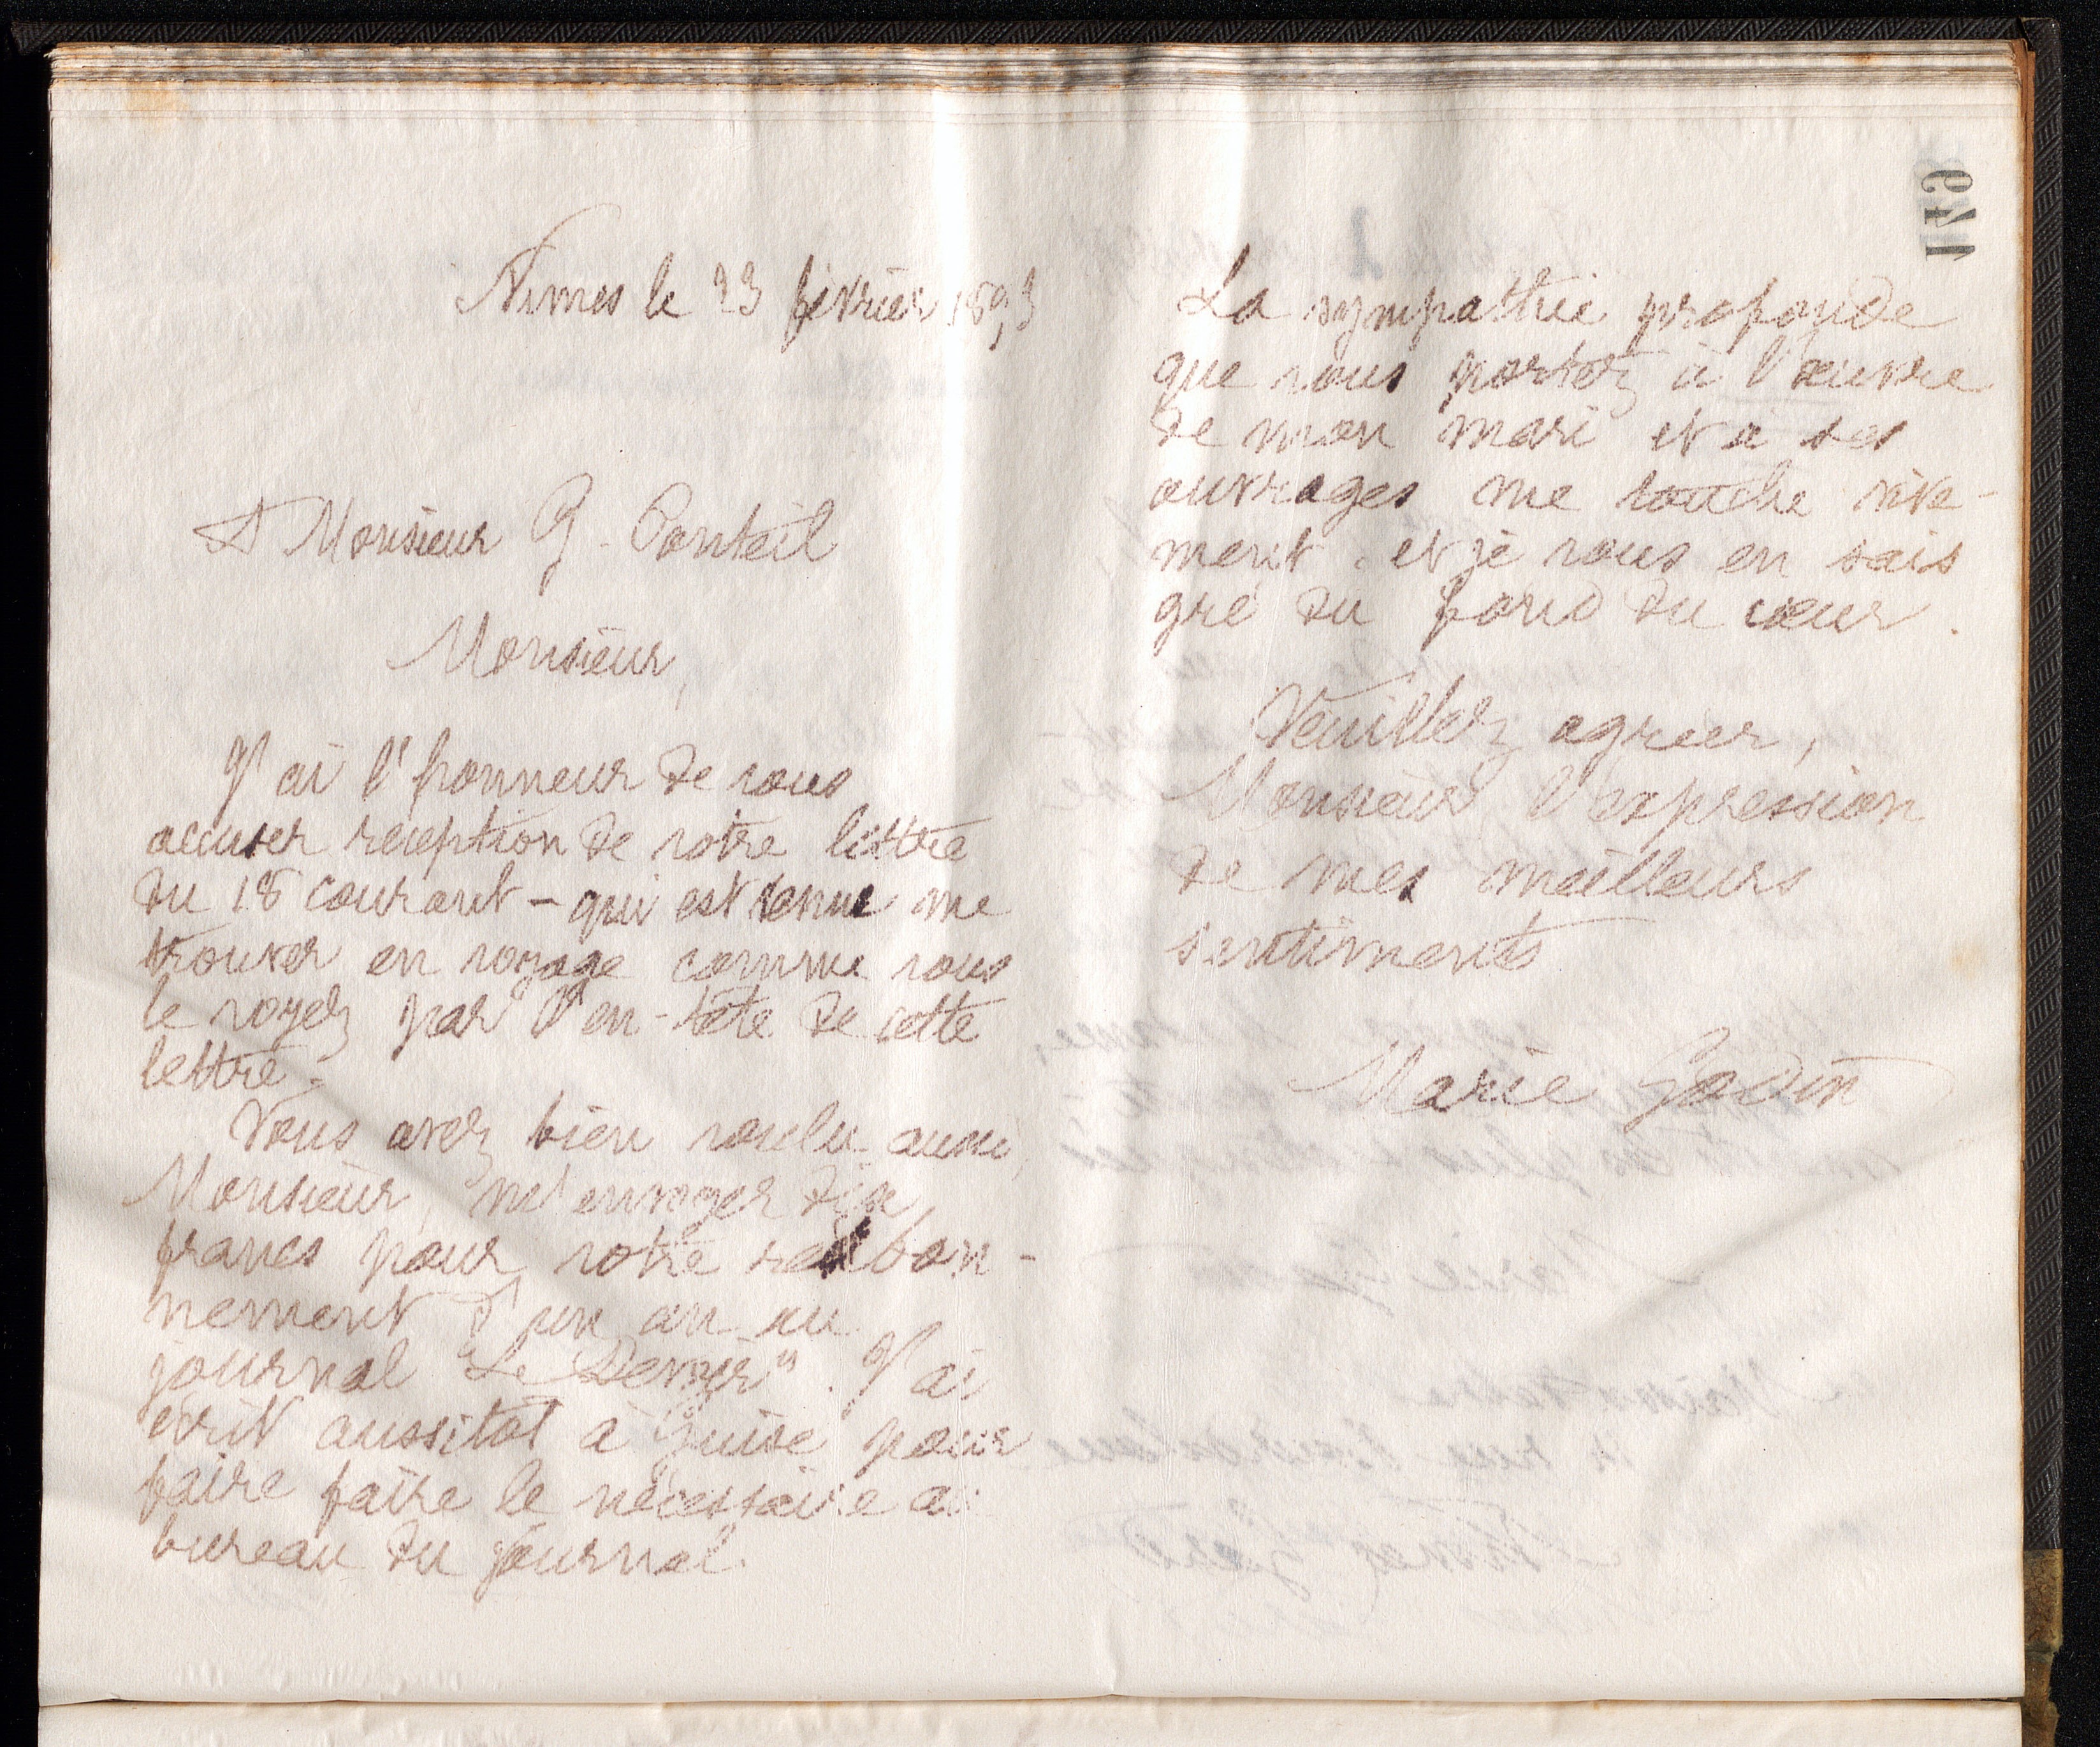 Nîmes le 23 février 1893
A Monsieur G. Conteil
Monsieur,
J'ai l'honneur de vous
accuser réception de votre lettre
du 18 courant – qui est venue me
trouver en voyage comme vous
le voyez par l'en-tête de cette
lettre.
Vous avez bien voulu aussi,
Monsieur, m'envoyer dix
francs pour votre réabon-
nement d'un an au
journal "Le Devoir". J'ai
écrit aussitôt à Guise pour
faire faire le nécessaire au
bureau du journal.
La sympathie profonde
que vous portez à l'œuvre
de mon mari et à ses
ouvrages me touche vive-
ment et je vous en sais
gré du fond du cœur.
Veuillez agréer,
Monsieur l'expression
de mes meilleurs
sentiments
Marie Godin
179